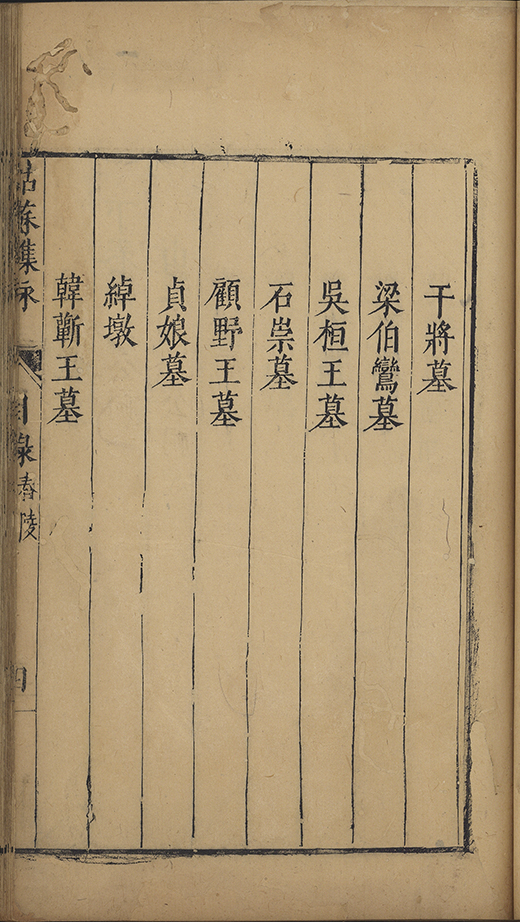 干將墓
梁伯鸞墓
吳桓王墓
石崇墓
顧野王墓
貞娘墓
綽墩
韓蘄王墓
姑蘇集詠 目錄 春陵 四